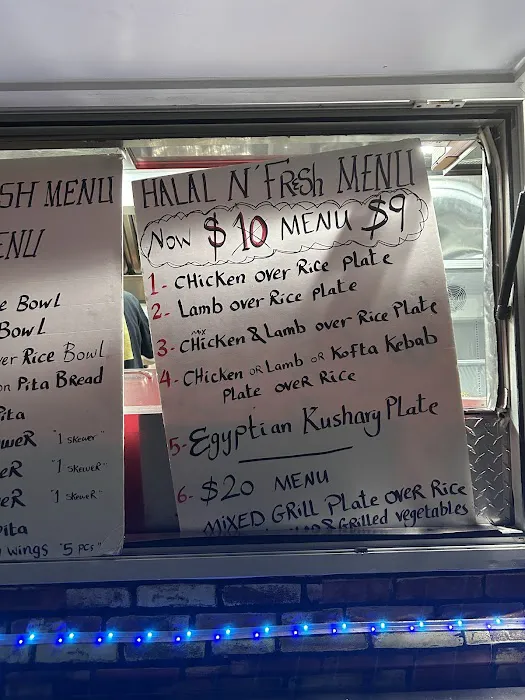 SH MENU
ENU
e Bowl
Bowl
er Rice Bowl
on Pita BREAD
ita
eweR "1 skewer"
eR "1 skeweR"
eR "1 skeweR"
ita
wings "5 pcs"
HALAL N' FResh MENU
Now $10 MENU $9
1- CHicken over Rice plate
2- Lamb over Rice plate
mix
3- CHicken & Lamb over Rice Plate
4- CHicken OR Lamb OR Kofta Kebab
Plate oveR Rice
5- Egyptian Kushary Plate
6- $20 MENU
MIXED GRILL Plate over Rice
& GRilled vegetables